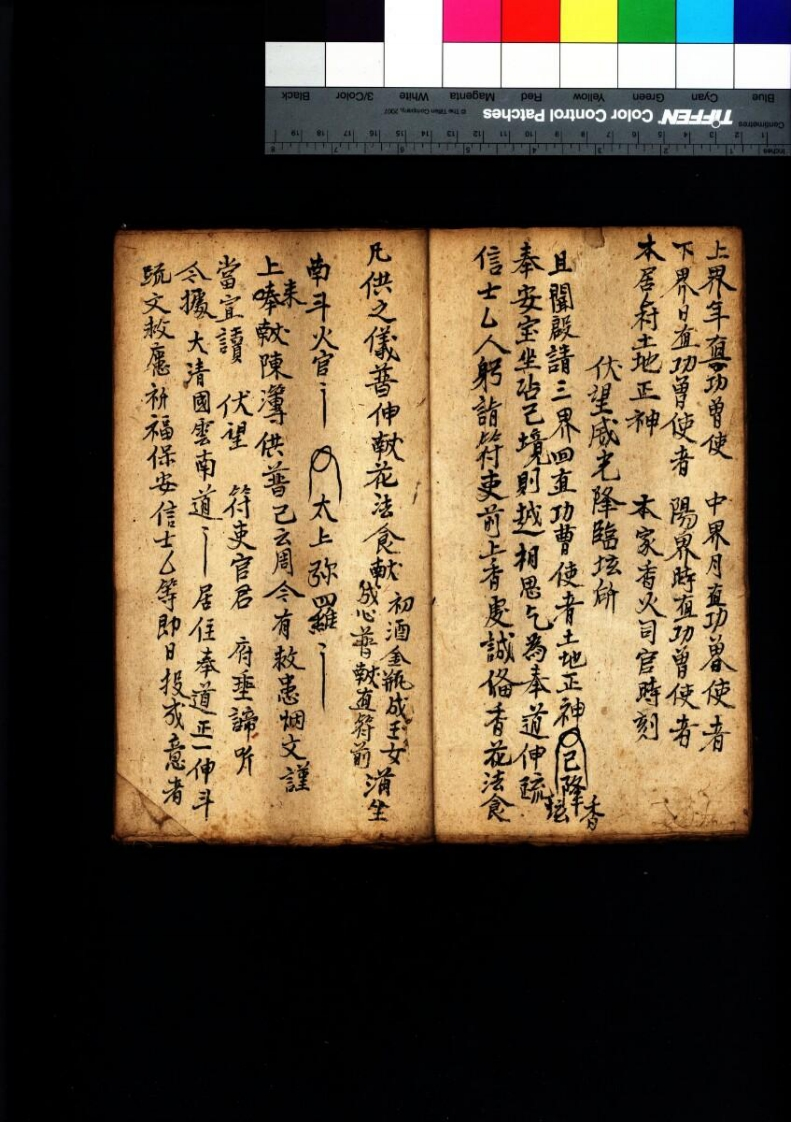 上界年直功曾使　中界月直功曾使者
下界日直功曾使者　陽界時直功曾使者
本居村土地正神　本家香火司官時刻
伏望威光降臨坛所
且聞啟請三界四直功曹使者土地正神已降坛　香
奉安宝坐砧己境則越相思乞為奉道伸疏
信士乙人躬詣符吏前上香虔誠俻香花法食
凡供之儀普伸献花法食献　初酒金瓶成王女　滿坐
誠心普献直符前
南斗火官　太上弥羅
上來奉献陳薄供普己云周今有救患烟文謹
當宜讀　伏望　符吏官君　府垂諦听
今據大清國雲南道　居住奉道正一伸斗
疏文救應祈福保安信士乙等即日投成意者
Blue Cyan Green Yellow Red Magenta White 3/Color Black
TIFFEN Color Control Patches © The Tiffen Company, 2007
Centimetres 1 2 3 4 5 6 7 8 9 10 11 12 13 14 15 16 17 18 19
Inches 1 2 3 4 5 6 7 8